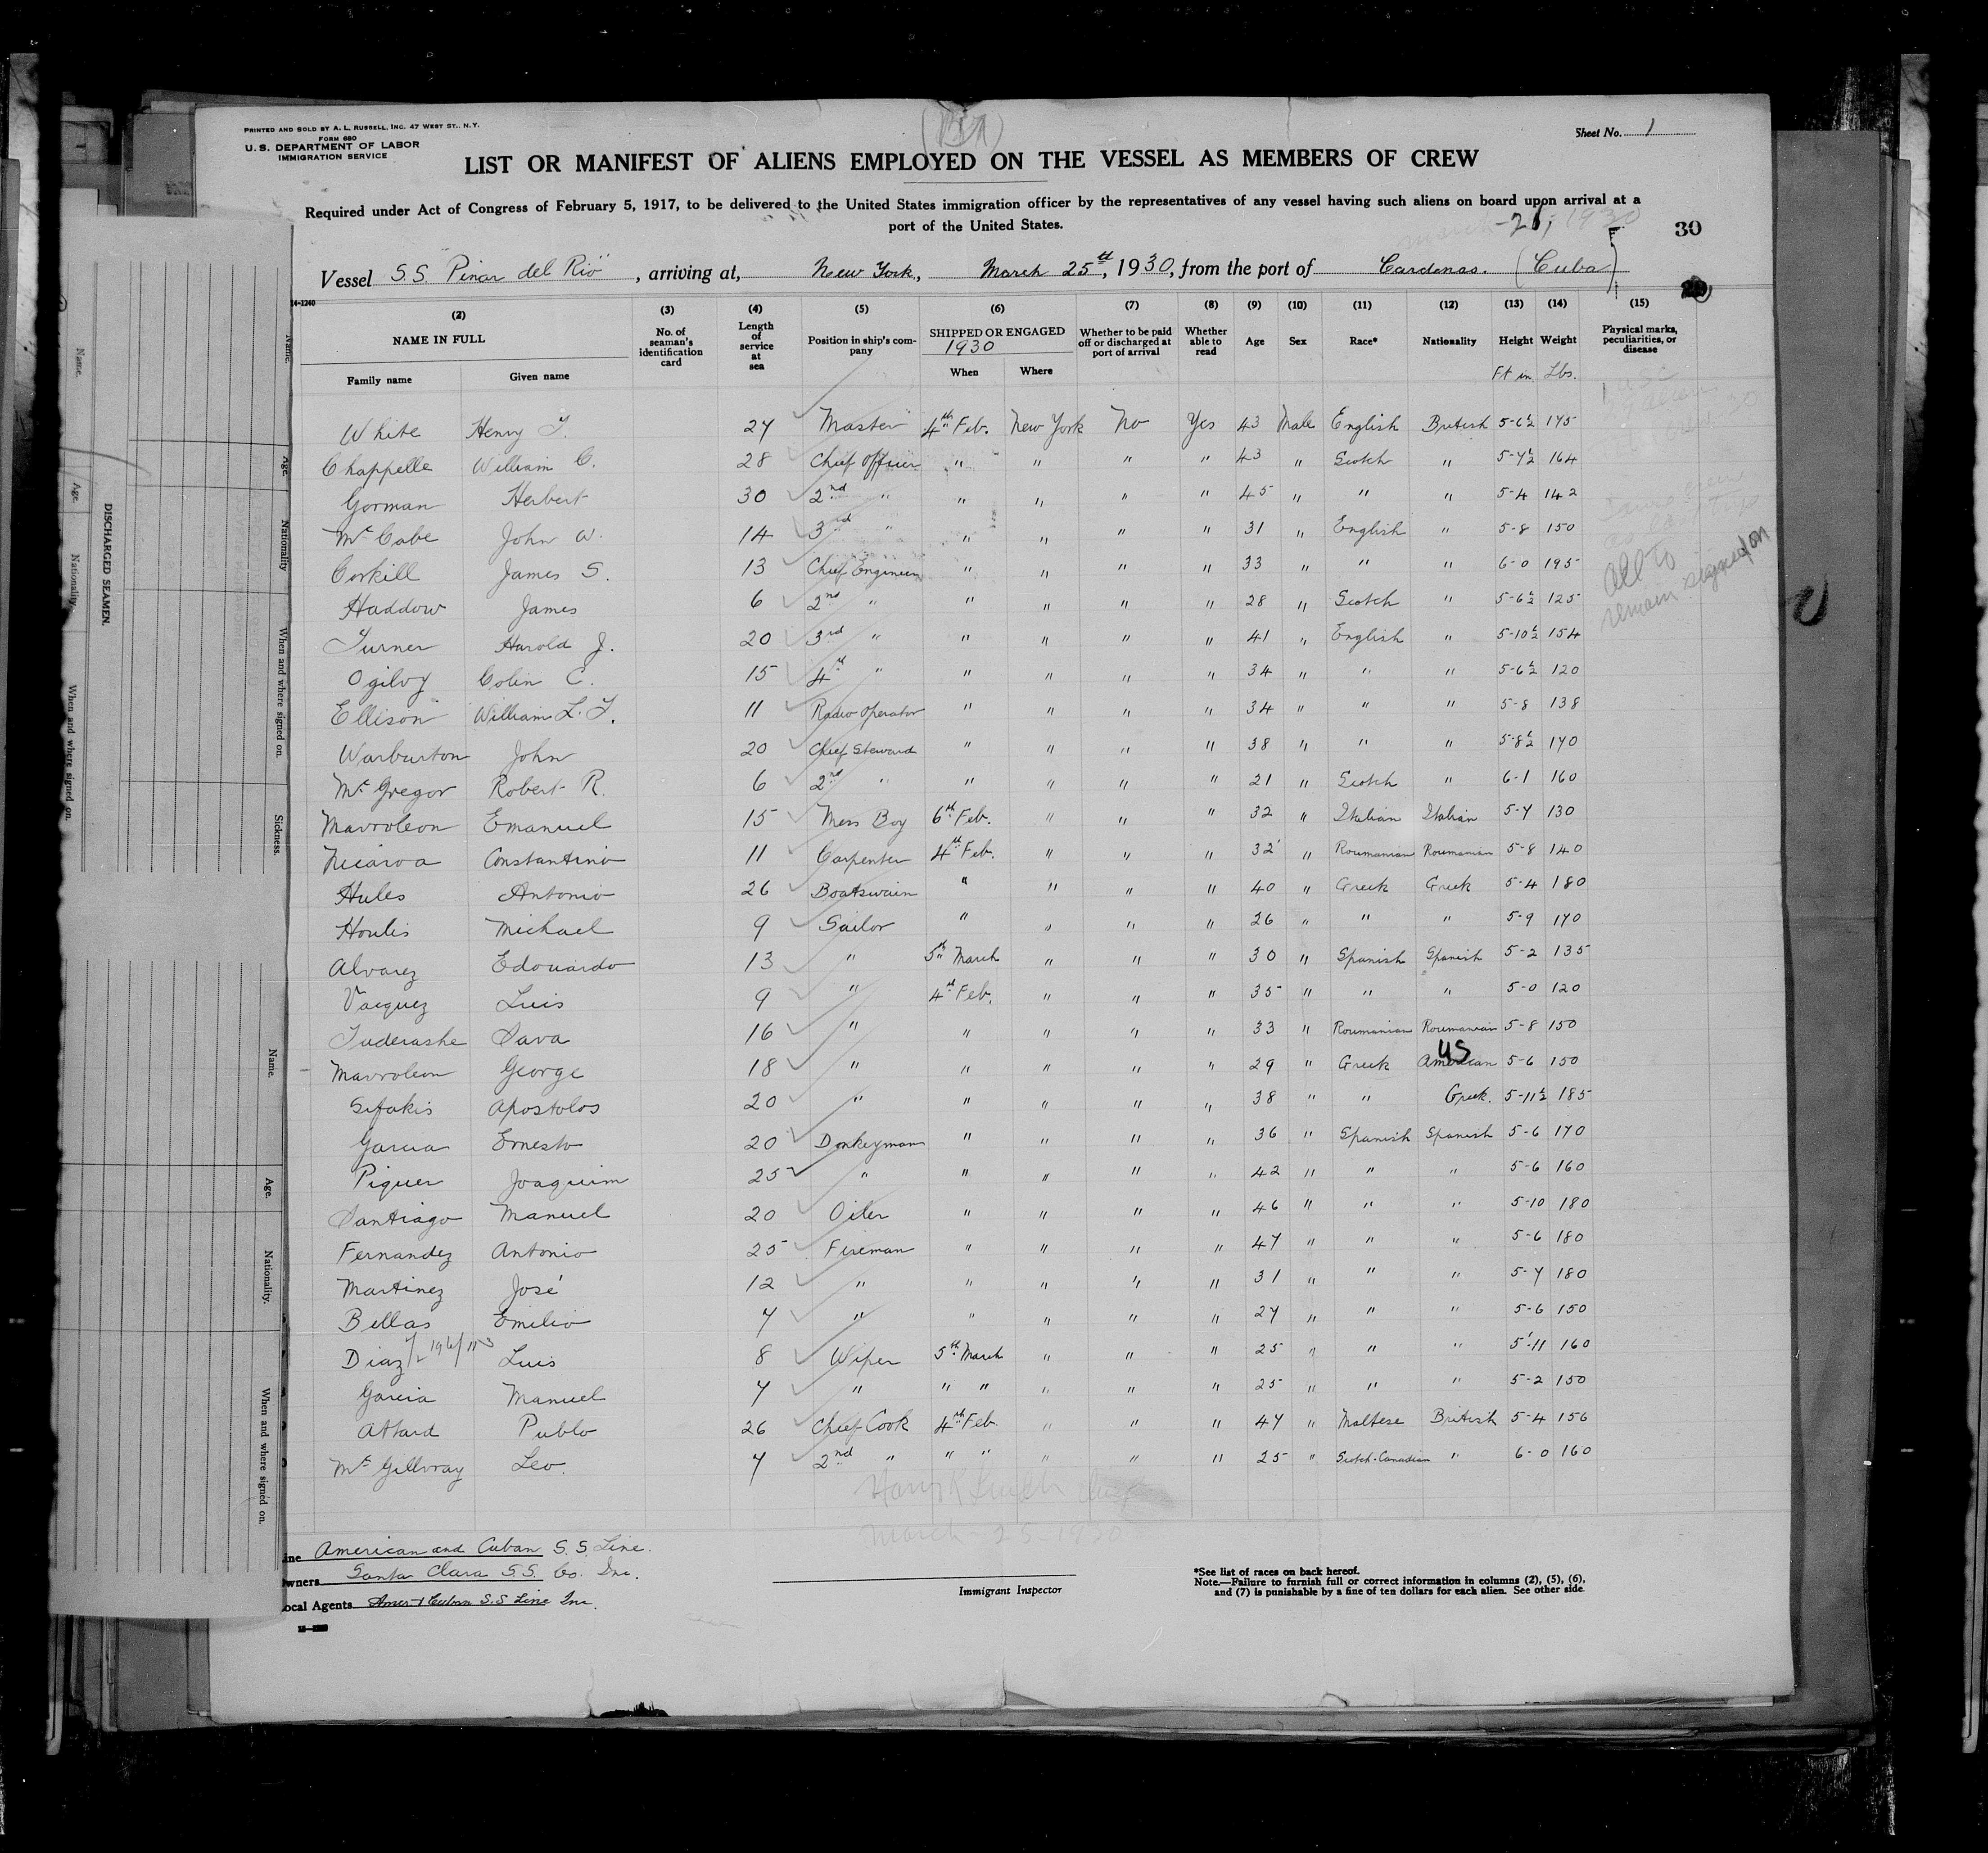 PRINTED AND SOLD BY A. L. RUSSELL, INC. 47 WEST ST., N.Y.
FORM 680
U. S. DEPARTMENT OF LABOR
IMMIGRATION SERVICE
Sheet No. 1
LIST OR MANIFEST OF ALIENS EMPLOYED ON THE VESSEL AS MEMBERS OF CREW
Required under Act of Congress of February 5, 1917, to be delivered to the United States immigration officer by the representatives of any vessel having such aliens on board upon arrival at a
port of the United States.
March-21, 1930
30
Vessel S.S. "Pinar del Rio", arriving at, New York, March 25th, 1930, from the port of Cardenas. (Cuba)
14-1240
(2) (3) (4) (5) (6) (7) (8) (9) (10) (11) (12) (13) (14) (15)
NAME IN FULL No. of seaman's identification card Length of service at sea Position in ship's company SHIPPED OR ENGAGED 1930 Whether to be paid off or discharged at port of arrival Whether able to read Age Sex Race* Nationality Height Weight Physical marks, peculiarities, or disease
Family name Given name When Where Ft in Lbs.
White Henry T. 27 Master 4th Feb. New York No Yes 43 Male English British 5-6½ 175
Chappelle William C. 28 Chief Officer " " " " 43 " Scotch " 5-7½ 164
Gorman Herbert 30 2nd " " " " " 45 " " " 5-4 142
McCabe John W. 14 3rd " " " " " 31 " English " 5-8 150
Corkill James S. 13 Chief Engineer " " " " 33 " " " 6-0 195
Haddow James 6 2nd " " " " " 28 " Scotch " 5-6½ 125
Turner Harold J. 20 3rd " " " " " 41 " English " 5-10½ 154
Ogilvy Colin C. 15 4th " " " " " 34 " " " 5-6½ 120
Ellison William L. T. 11 Radio Operator " " " " 34 " " " 5-8 138
Warburton John 20 Chief Steward " " " " 38 " " " 5-8½ 170
McGregor Robert R. 6 2nd " " " " " 21 " Scotch " 6-1 160
Mavroleon Emanuel 15 Mess Boy 6th Feb. " " " 32 " Italian Italian 5-7 130
Nicaroa Constantino 11 Carpenter 4th Feb. " " " 32 " Roumanian Roumanian 5-8 140
Hules Antonio 26 Boatswain " " " " 40 " Greek Greek 5-4 180
Houlis Michael 9 Sailor " " " " 26 " " " 5-9 170
Alvarez Edouardo 13 " 5th March " " " 30 " Spanish Spanish 5-2 135
Vacquez Luis 9 " 4th Feb. " " " 35 " " " 5-0 120
Tuderashe Sava 16 " " " " " 33 " Roumanian Roumanian 5-8 150
Mavroleon George 18 " " " " " 29 " Greek American US 5-6 150
Sifakis Apostolos 20 " " " " " 38 " " Greek. 5-11½ 185
Garcia Ernesto 20 Donkeyman " " " " 36 " Spanish Spanish 5-6 170
Piquer Joaquim 25 " " " " " 42 " " " 5-6 160
Santiago Manuel 20 Oiler " " " " 46 " " " 5-10 180
Fernandez Antonio 25 Fireman " " " " 47 " " " 5-6 180
Martinez José 12 " " " " " 31 " " " 5-7 180
Bellas Emilio 7 " " " " " 27 " " " 5-6 150
Diaz Luis 8 Wiper 5th March " " " 25 " " " 5-11 160
Garcia Manuel 7 " " " " " " 25 " " " 5-2 150
Attard Publo 26 Chief Cook 4th Feb. " " " 47 " Maltese British 5-4 156
McGillvray Leo. 7 2nd " " " " " " 25 " Scotch-Canadian " 6-0 160
All to
remain signed on
March-25-1930
Line American and Cuban S.S. Line.
Owners Santa Clara S.S. Co. Inc.
Local Agents Amer & Cuban S.S. Line Inc.
Immigrant Inspector
*See list of races on back hereof.
Note.—Failure to furnish full or correct information in columns (2), (5), (6),
and (7) is punishable by a fine of ten dollars for each alien. See other side.
DISCHARGED SEAMEN.
Name. Age. Nationality. When and where signed on.
Name. Age. Nationality When and where signed on. Sickness.
Name. Age. Nationality. When and where signed on.